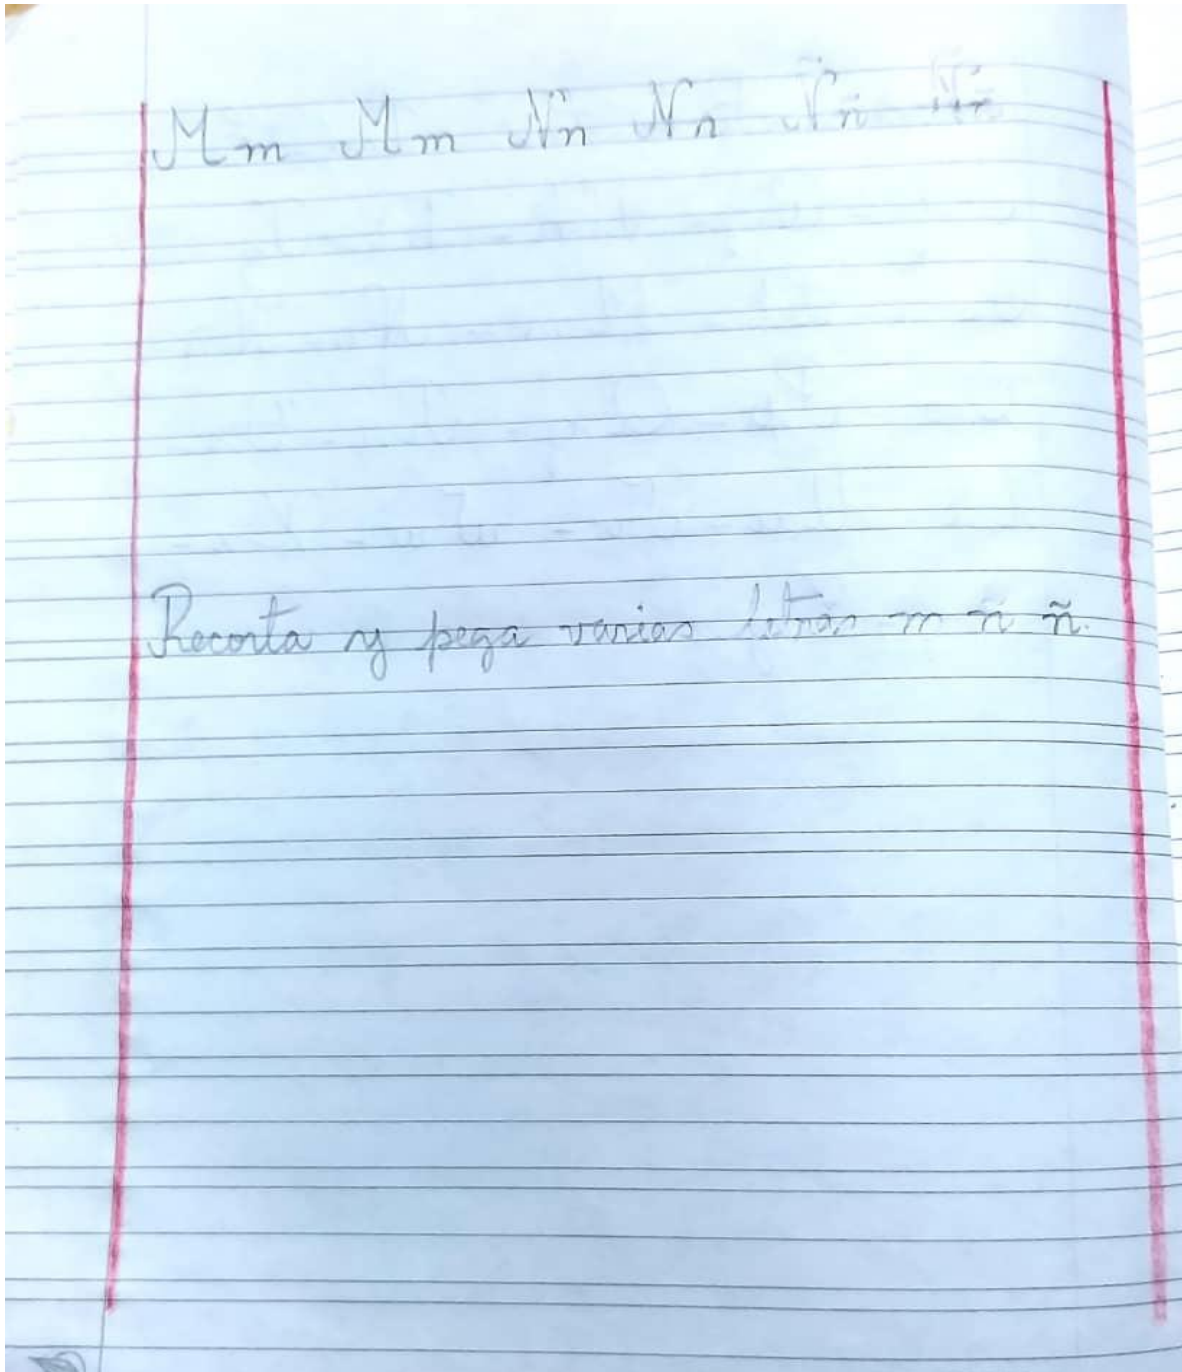 Mm Mm Nn Nn Ññ Ññ
Recorta y pega varias letras m n ñ.